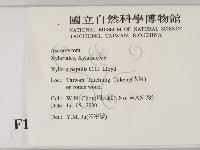 國立自然科學博物館
NATIONAL MUSEUM OF NATURAL SCIENCE
TAICHUNG, TAIWAN, R.O.CHINA
Ascomycota
Xylariales, Xylariaceae
Xylaria papulis C.G. Lloyd
Loc: Taiwan, Taichung, Takeng(大坑)
on rotten wood.
Coll: W.N. Chou, No. WAN 782
Date: Jul 05, 2000
Det: Y.M. Ju
F1